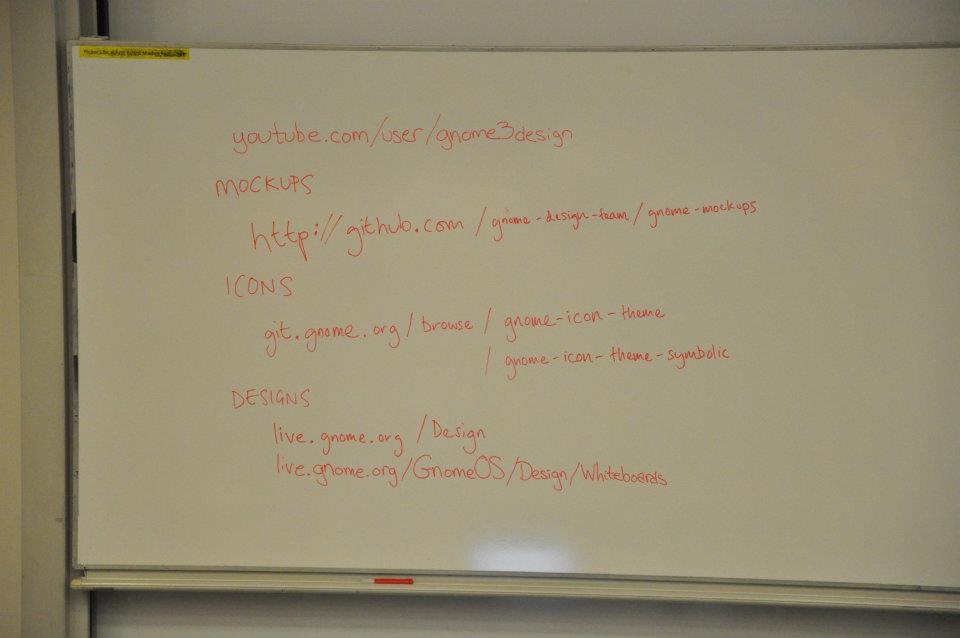 youtube.com/user/gnome3design
MOCKUPS
http://github.com/gnome-design-team/gnome-mockups
ICONS
git.gnome.org/browse/gnome-icon-theme
/gnome-icon-theme-symbolic
DESIGNS
live.gnome.org/Design
live.gnome.org/GnomeOS/Design/Whiteboards